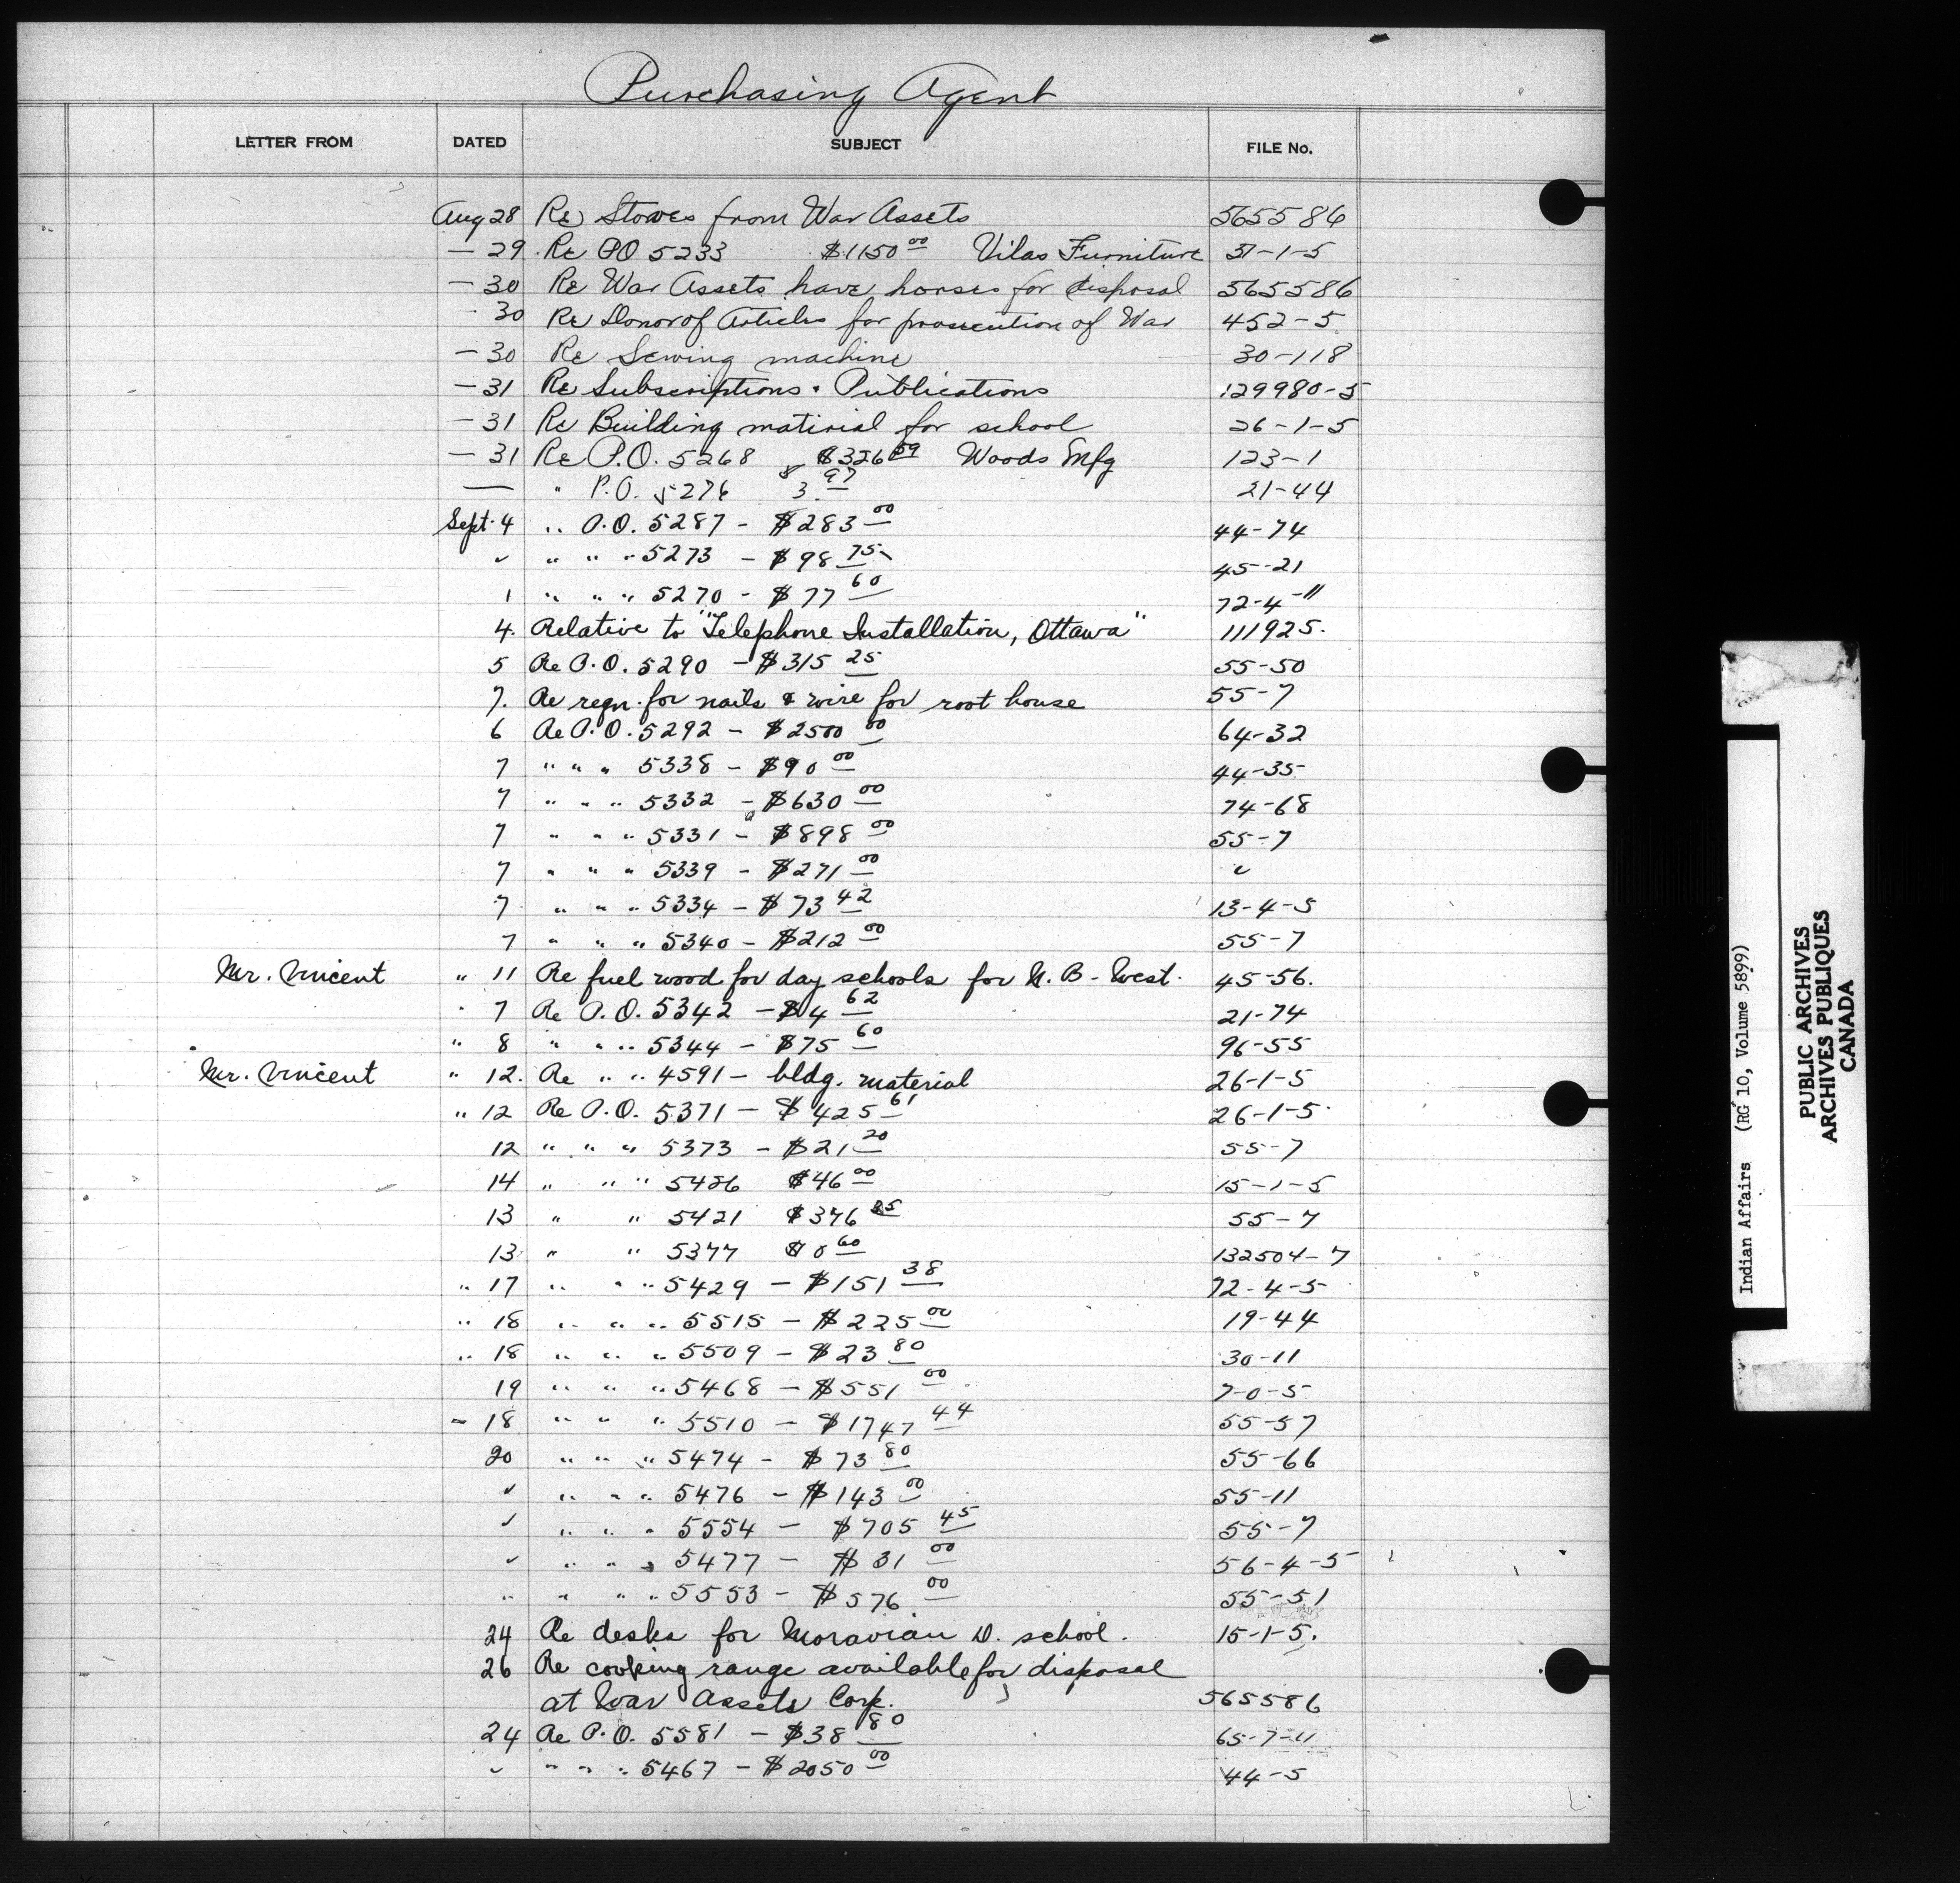 Purchasing Agent
LETTER FROM DATED SUBJECT FILE No.
Aug 28 Re Stoves from War Assets 565586
— 29 Re PO 5233 $1150 00 Vilas Furniture 51-1-5
— 30 Re War Assets have horses for disposal 565586
30 Re Donor of Articles for prosecution of War 452-5
— 30 Re Sewing machine 30-118
— 31 Re Subscriptions & Publications 129980-5
— 31 Re Building material for school 26-1-5
— 31 Re P.O. 5268 $326 59 Woods Mfg 123-1
— " P.O. 5276 $3.97 21-44
Sept. 4 " P.O. 5287 - $283 00 44-74
" " " " 5273 - $98 75 45-21
1 " " " 5270 - $77 60 72-4-11
4. Relative to "Telephone Installation, Ottawa" 111925.
5 Re P.O. 5290 - $315 25 55-50
7. Re reqn. for nails & wire for root house 55-7
6 Re P.O. 5292 - $2500 00 64-32
7 " " " 5338 - $90 00 44-35
7 " " " 5332 - $630 00 74-68
7 " " " 5331 - $898 00 55-7
7 " " " 5339 - $271 00 "
7 " " " 5334 - $73 42 13-4-5
7 " " " 5340 - $212 00 55-7
Mr. Vincent " 11 Re fuel wood for day schools for N.B - West. 45-56.
" 7 Re P.O. 5342 - $4 62 21-74
" 8 " " " 5344 - $75 60 96-55
Mr. Vincent " 12. Re " " 4591 - bldg. material 26-1-5
" 12 Re P.O. 5371 - $425 61 26-1-5
12 " " " 5373 - $21 20 55-7
14 " " " 5426 $46 00 15-1-5
13 " " 5421 $376 85 55-7
13 " " 5377 $0 60 132504-7
" 17 " " " 5429 - $151 38 72-4-5
" 18 " " " 5515 - $225 00 19-44
" 18 " " " 5509 - $23 80 30-11
19 " " " 5468 - $551 00 7-0-5
- 18 " " " 5510 - $1747 44 55-57
20 " " " 5474 - $73 80 55-66
" " " " 5476 - $143 00 55-11
" " " " 5554 - $705 45 55-7
" " " " 5477 - $31 00 56-4-5
" " " " 5553 - $576 00 55-51
24 Re desks for Moravian D. school. 15-1-5.
26 Re cooking range available for disposal
at War Assets Corp. 565586
24 Re P.O. 5581 - $38 80 65-7-11
" " " " 5467 - $2050 00 44-5
Indian Affairs (RG 10, Volume 5899)
PUBLIC ARCHIVES
ARCHIVES PUBLIQUES
CANADA